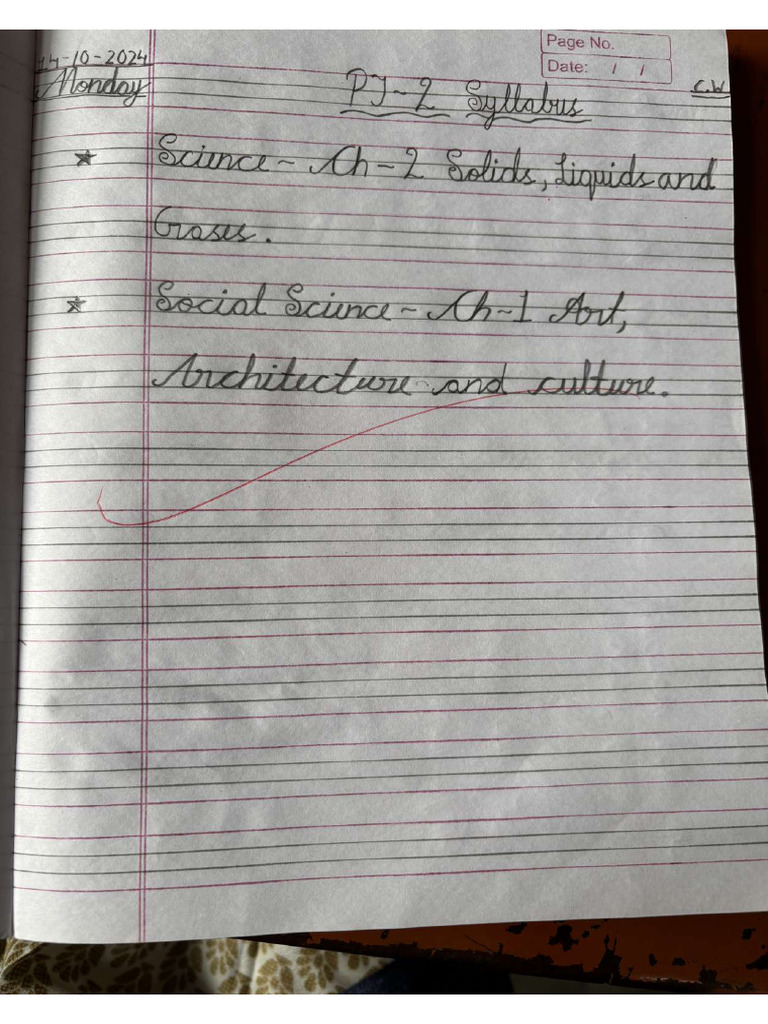 Page No.
Date: / /
14-10-2024
Monday
PT-2 Syllabus
C.W
★ Science - Ch-2 Solids, Liquids and
Gases.
★ Social Science - Ch-1 Art,
Architecture and culture.